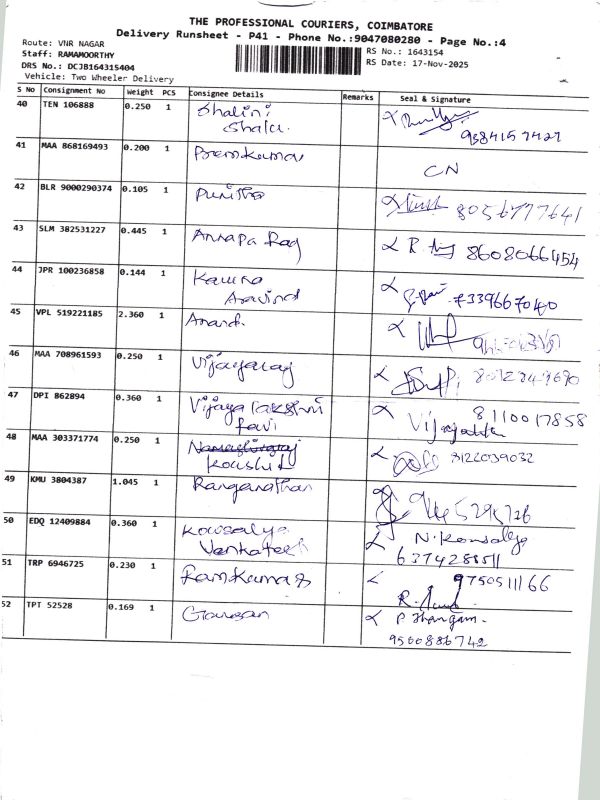 THE PROFESSIONAL COURIERS, COIMBATORE
Delivery Runsheet - P41 - Phone No.:9047080280 - Page No.:4
Route: VNR NAGAR
RS No.: 1643154
Staff: RAMAMOORTHY
RS Date: 17-Nov-2025
DRS No.: DCJB164315404
Vehicle: Two Wheeler Delivery
S No Consignment No Weight PCS Consignee Details Remarks Seal & Signature
40 TEN 106888 0.250 1 Shalini
Shalu.
9384157427
41 MAA 868169493 0.200 1 Premkumar
CN
42 BLR 9000290374 0.105 1 Punitha
8056777641
43 SLM 382531227 0.445 1 Annapa Raj
R 8608066454
44 JPR 100236858 0.144 1
Aravind
7339667040
45 VPL 519221185 2.360 1 Anand.
46 MAA 708961593 0.250 1 Vijayaraj
47 DPI 862894 0.360 1 Vijayalakshmi 8110017858
Ravi
48 MAA 303371774 0.250 1
Koushik 3122039032
49 KMU 3804387 1.045 1 Ranganathan
50 EDQ 12409884 0.360 1 Kowsalya N. Kowsalya
Venkatesh
51 TRP 6946725 0.230 1 Ramkumar 9750511166
R.
52 TPT 52528 0.169 1 P Thangam.
9500886742